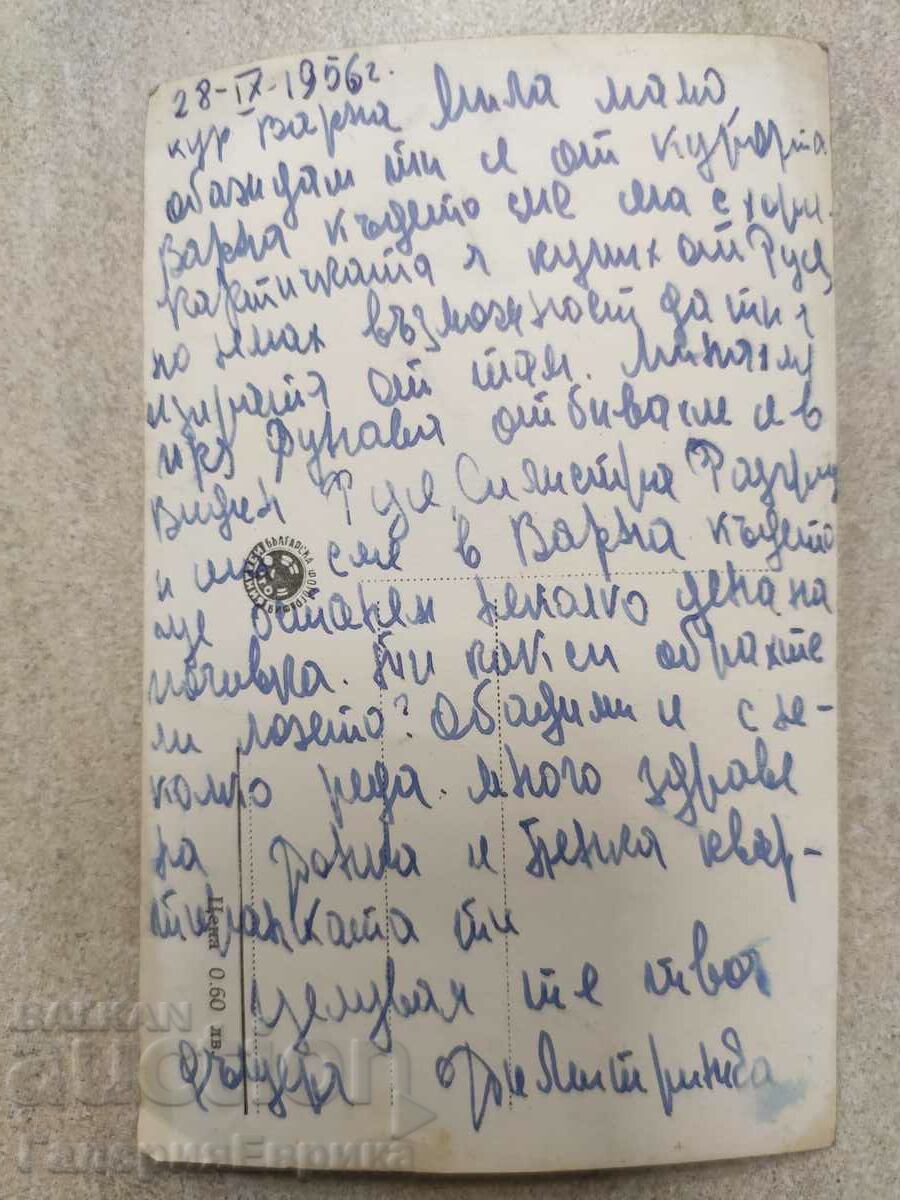 28-IX-1956 г.
кур Варна Мила мамо
обаждам ти се от курорта
Варна където сме ма с хора.
картичката я купих от Русе,
но немах възможност да ти я
изпратя от там. Минахме
през Дунавя отбивахме се в
Видин Русе, Силистра Разград
и ето сме в Варна където
ще останем неколко дена на
почивка. Ти как си обрахте
ли лозето? Обади ми се с не-
колко реда. много здраве
на Донка и Ненка квар-
тирантката ти
целувам те твоя
дъщеря Димитринка
БЪЛГАРСКА ФОТОГРАФИЯ
Цена 0.60 лв
BALKAN
auction
ГалерияЕврика